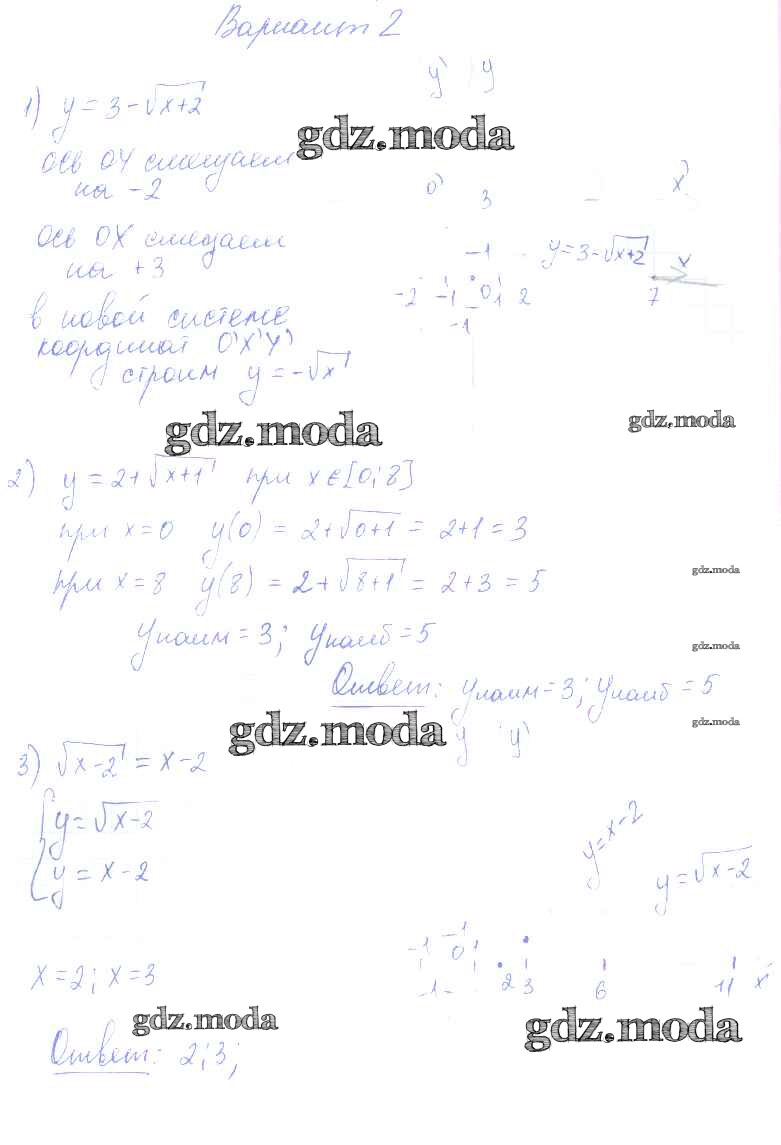 Вариант 2
1) y = 3 - √x+2
y' y
gdz.moda
ось OY смещаем
на -2
0' 3 x'
ось OX смещаем
на +3
-1 y = 3 - √x+2 x
-2 -1 0 1 2 7
-1
в новой системе
координат O'X'Y'
строим y = -√x
gdz.moda
gdz.moda
2) y = 2 + √x+1 при x ∈ [0; 8]
при x = 0 y(0) = 2 + √0+1 = 2 + 1 = 3
при x = 8 y(8) = 2 + √8+1 = 2 + 3 = 5
gdz.moda
yнаим = 3; yнаиб = 5
gdz.moda
Ответ: yнаим = 3; yнаиб = 5
gdz.moda
gdz.moda
y y'
3) √x-2 = x - 2
y = √x-2
y = x - 2
y = x - 2
y = √x-2
-1 -1 0 1
x = 2; x = 3
-1 2 3 6 11 x'
gdz.moda
gdz.moda
Ответ: 2; 3;